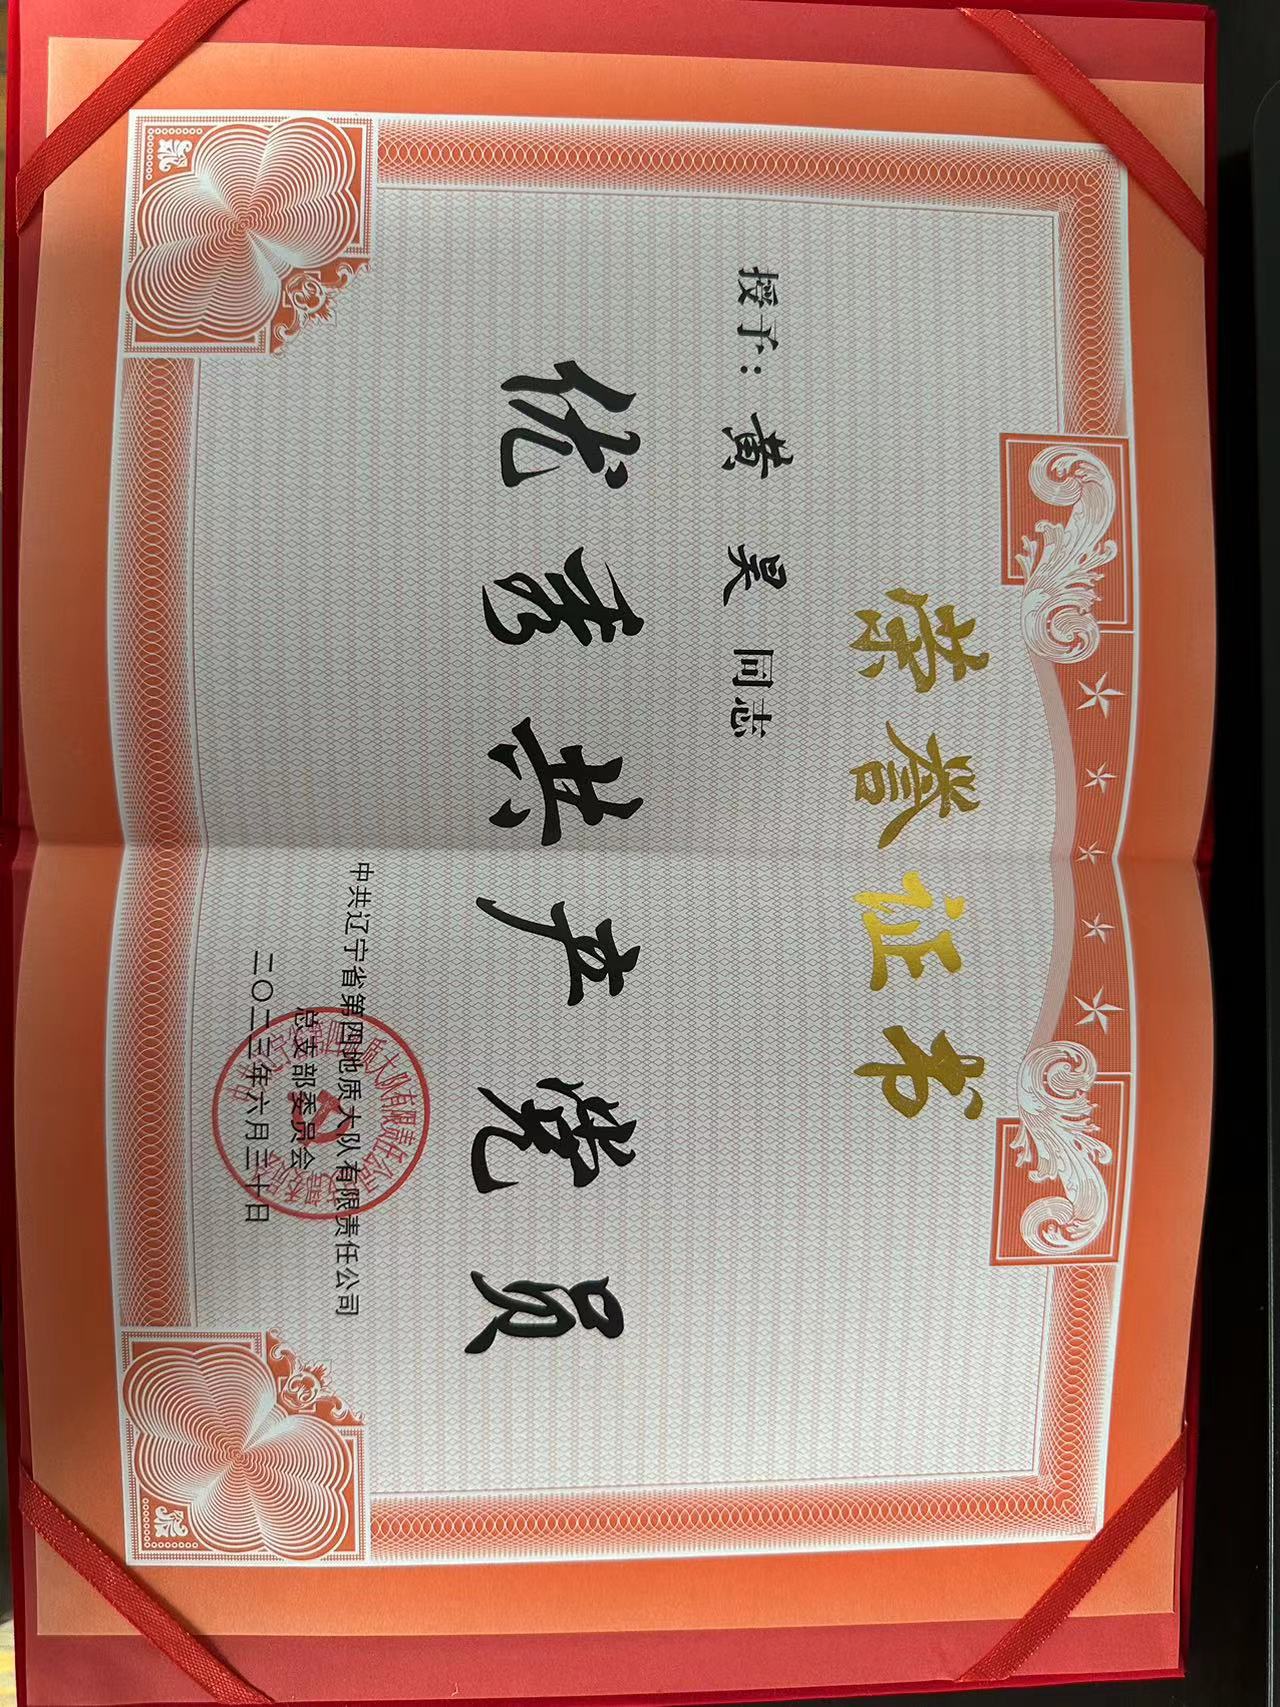 荣誉证书
授予：黄昊同志
优秀共产党员
中共辽宁省第四地质大队有限责任公司
总支部委员会
二〇二三年六月三十日